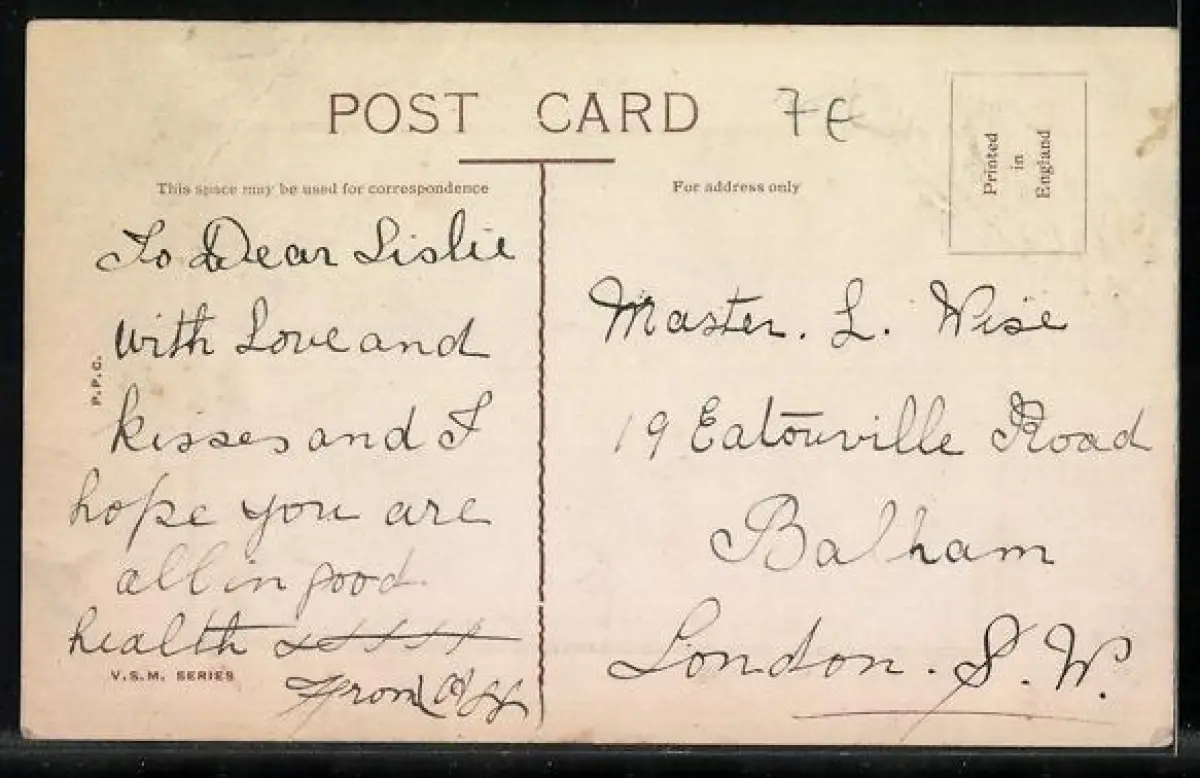 POST CARD
7€
This space may be used for correspondence
For address only
Printed
in
England
To Dear Lislie
with Love and
kisses and I
hope you are
all in good
health
From
P.P.C.
V.S.M. SERIES
Master. L. Wise
19 Eatonville Road
Balham
London. S.W.